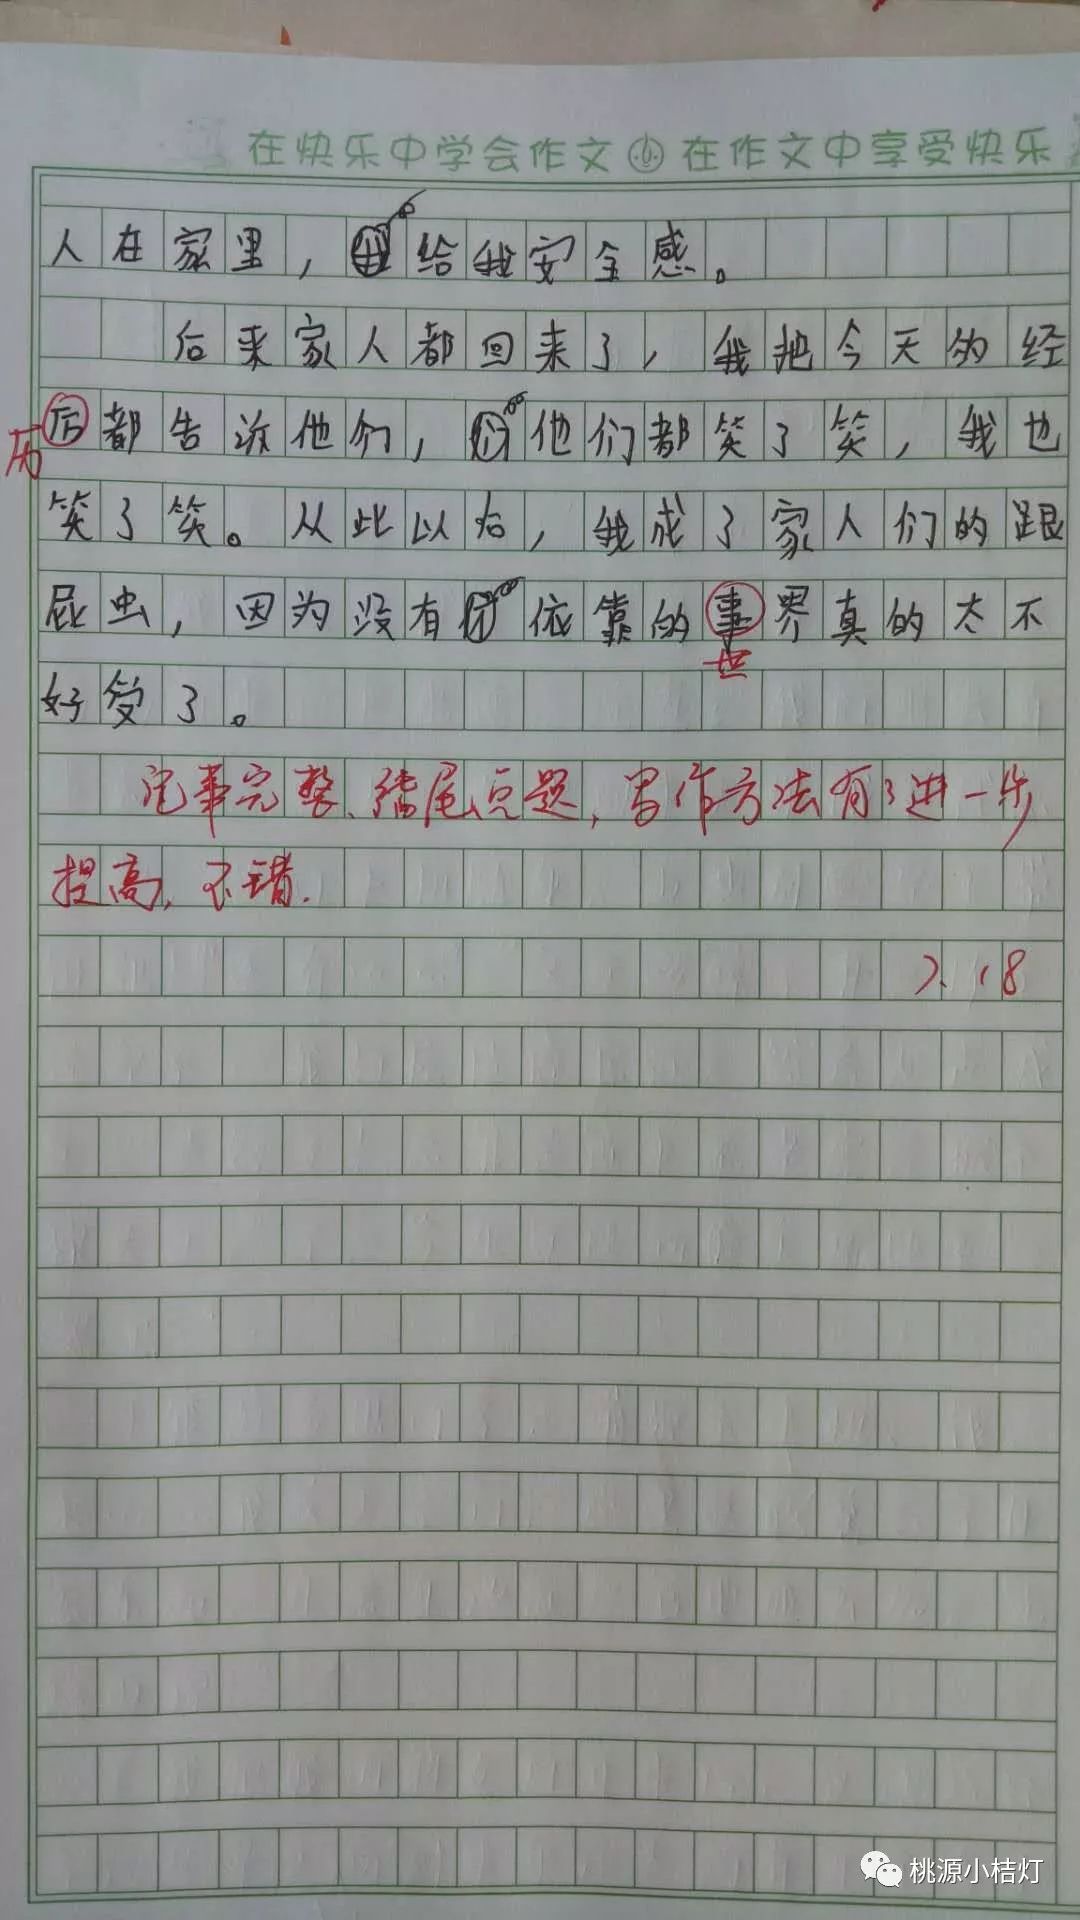 在快乐中学会作文 在作文中享受快乐
人在家里，给我安全感。
后来家人都回来了，我把今天的经
后都告诉他们，他们都笑了笑，我也
历
笑了笑。从此以后，我成了家人们的跟
屁虫，因为没有依靠的事界真的太不
世
好受了。
记事完整、结尾点题，写作方法有了进一步
提高，不错.
2.18
桃源小桔灯